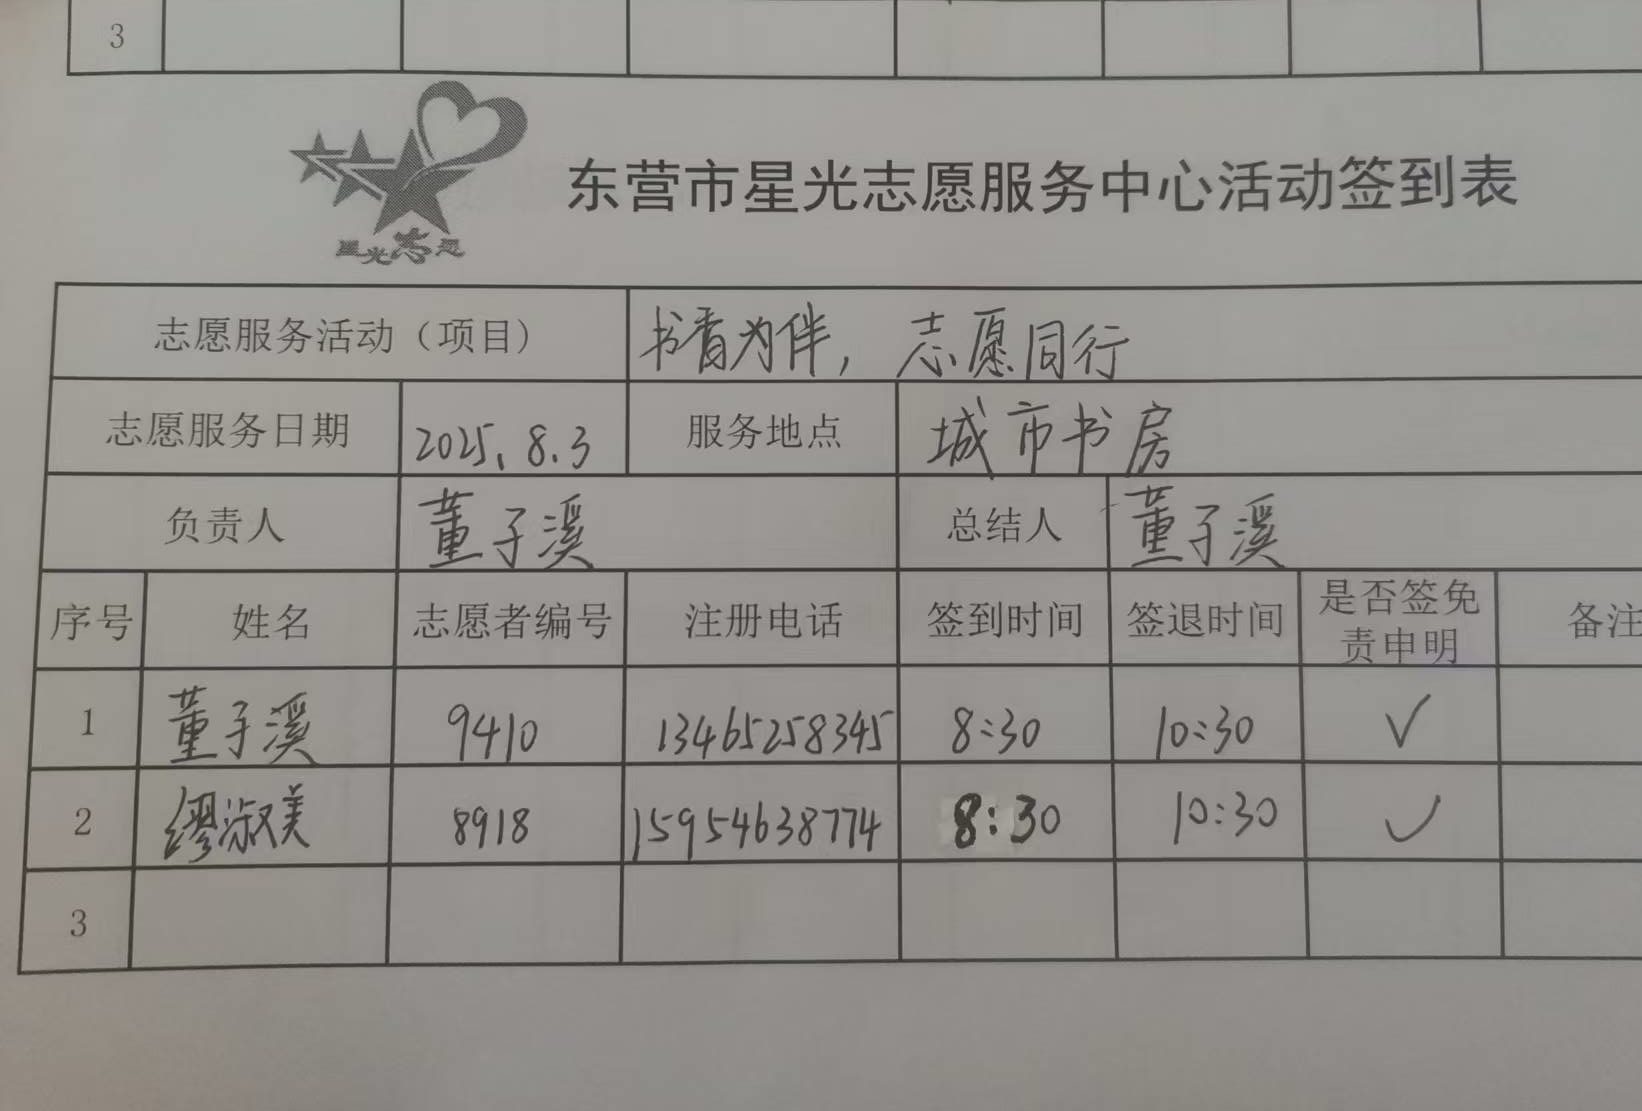 3
星光志愿
东营市星光志愿服务中心活动签到表
志愿服务活动（项目） 书香为伴，志愿同行
志愿服务日期 2025.8.3 服务地点 城市书房
负责人 董子溪 总结人 董子溪
序号 姓名 志愿者编号 注册电话 签到时间 签退时间 是否签免责申明 备注
1 董子溪 9410 13465258345 8:30 10:30 √
2 缪淑美 8918 15954638774 8:30 10:30 √
3